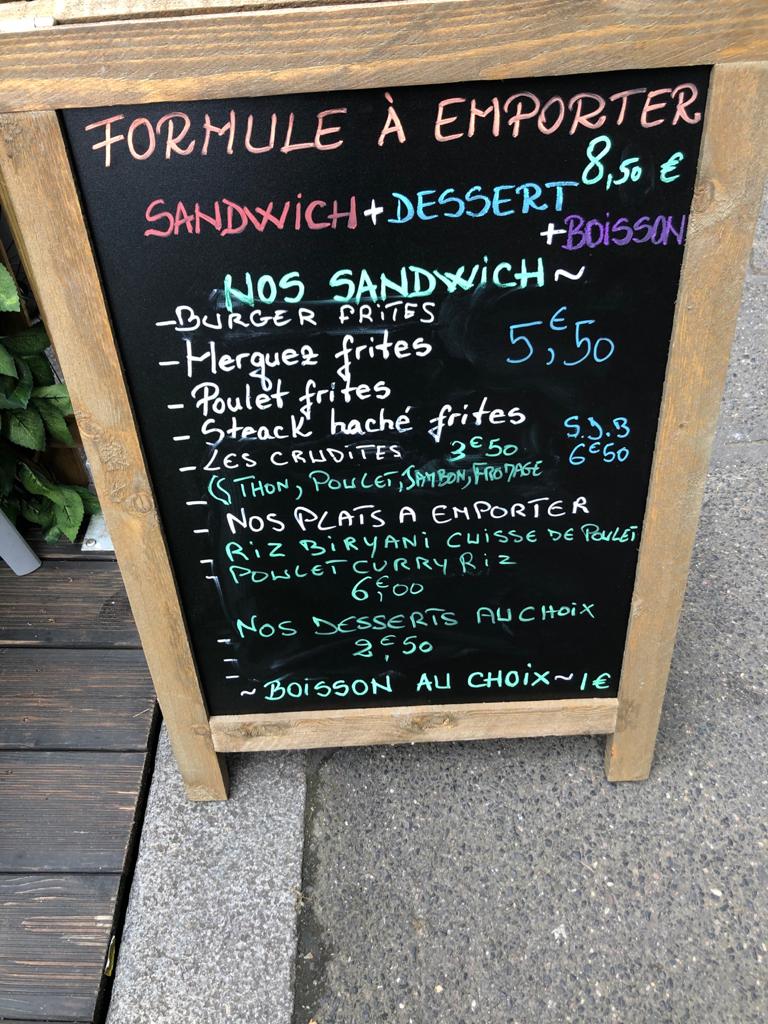 FORMULE À EMPORTER
8,50 €
SANDWICH + DESSERT
+ BOISSON
NOS SANDWICH ~
- BURGER FRITES
5,€50
- Merguez frites
- Poulet frites
- Steack haché frites
- LES CRUDITES 3€50
S.D.B
6€50
(THON, POULET, JAMBON, FROMAGE
- NOS PLATS A EMPORTER
- RIZ BIRYANI CUISSE DE POULET
- POULET CURRY RIZ
6,€00
NOS DESSERTS AU CHOIX
- 2,€50
-
-
~ BOISSON AU CHOIX ~ 1€